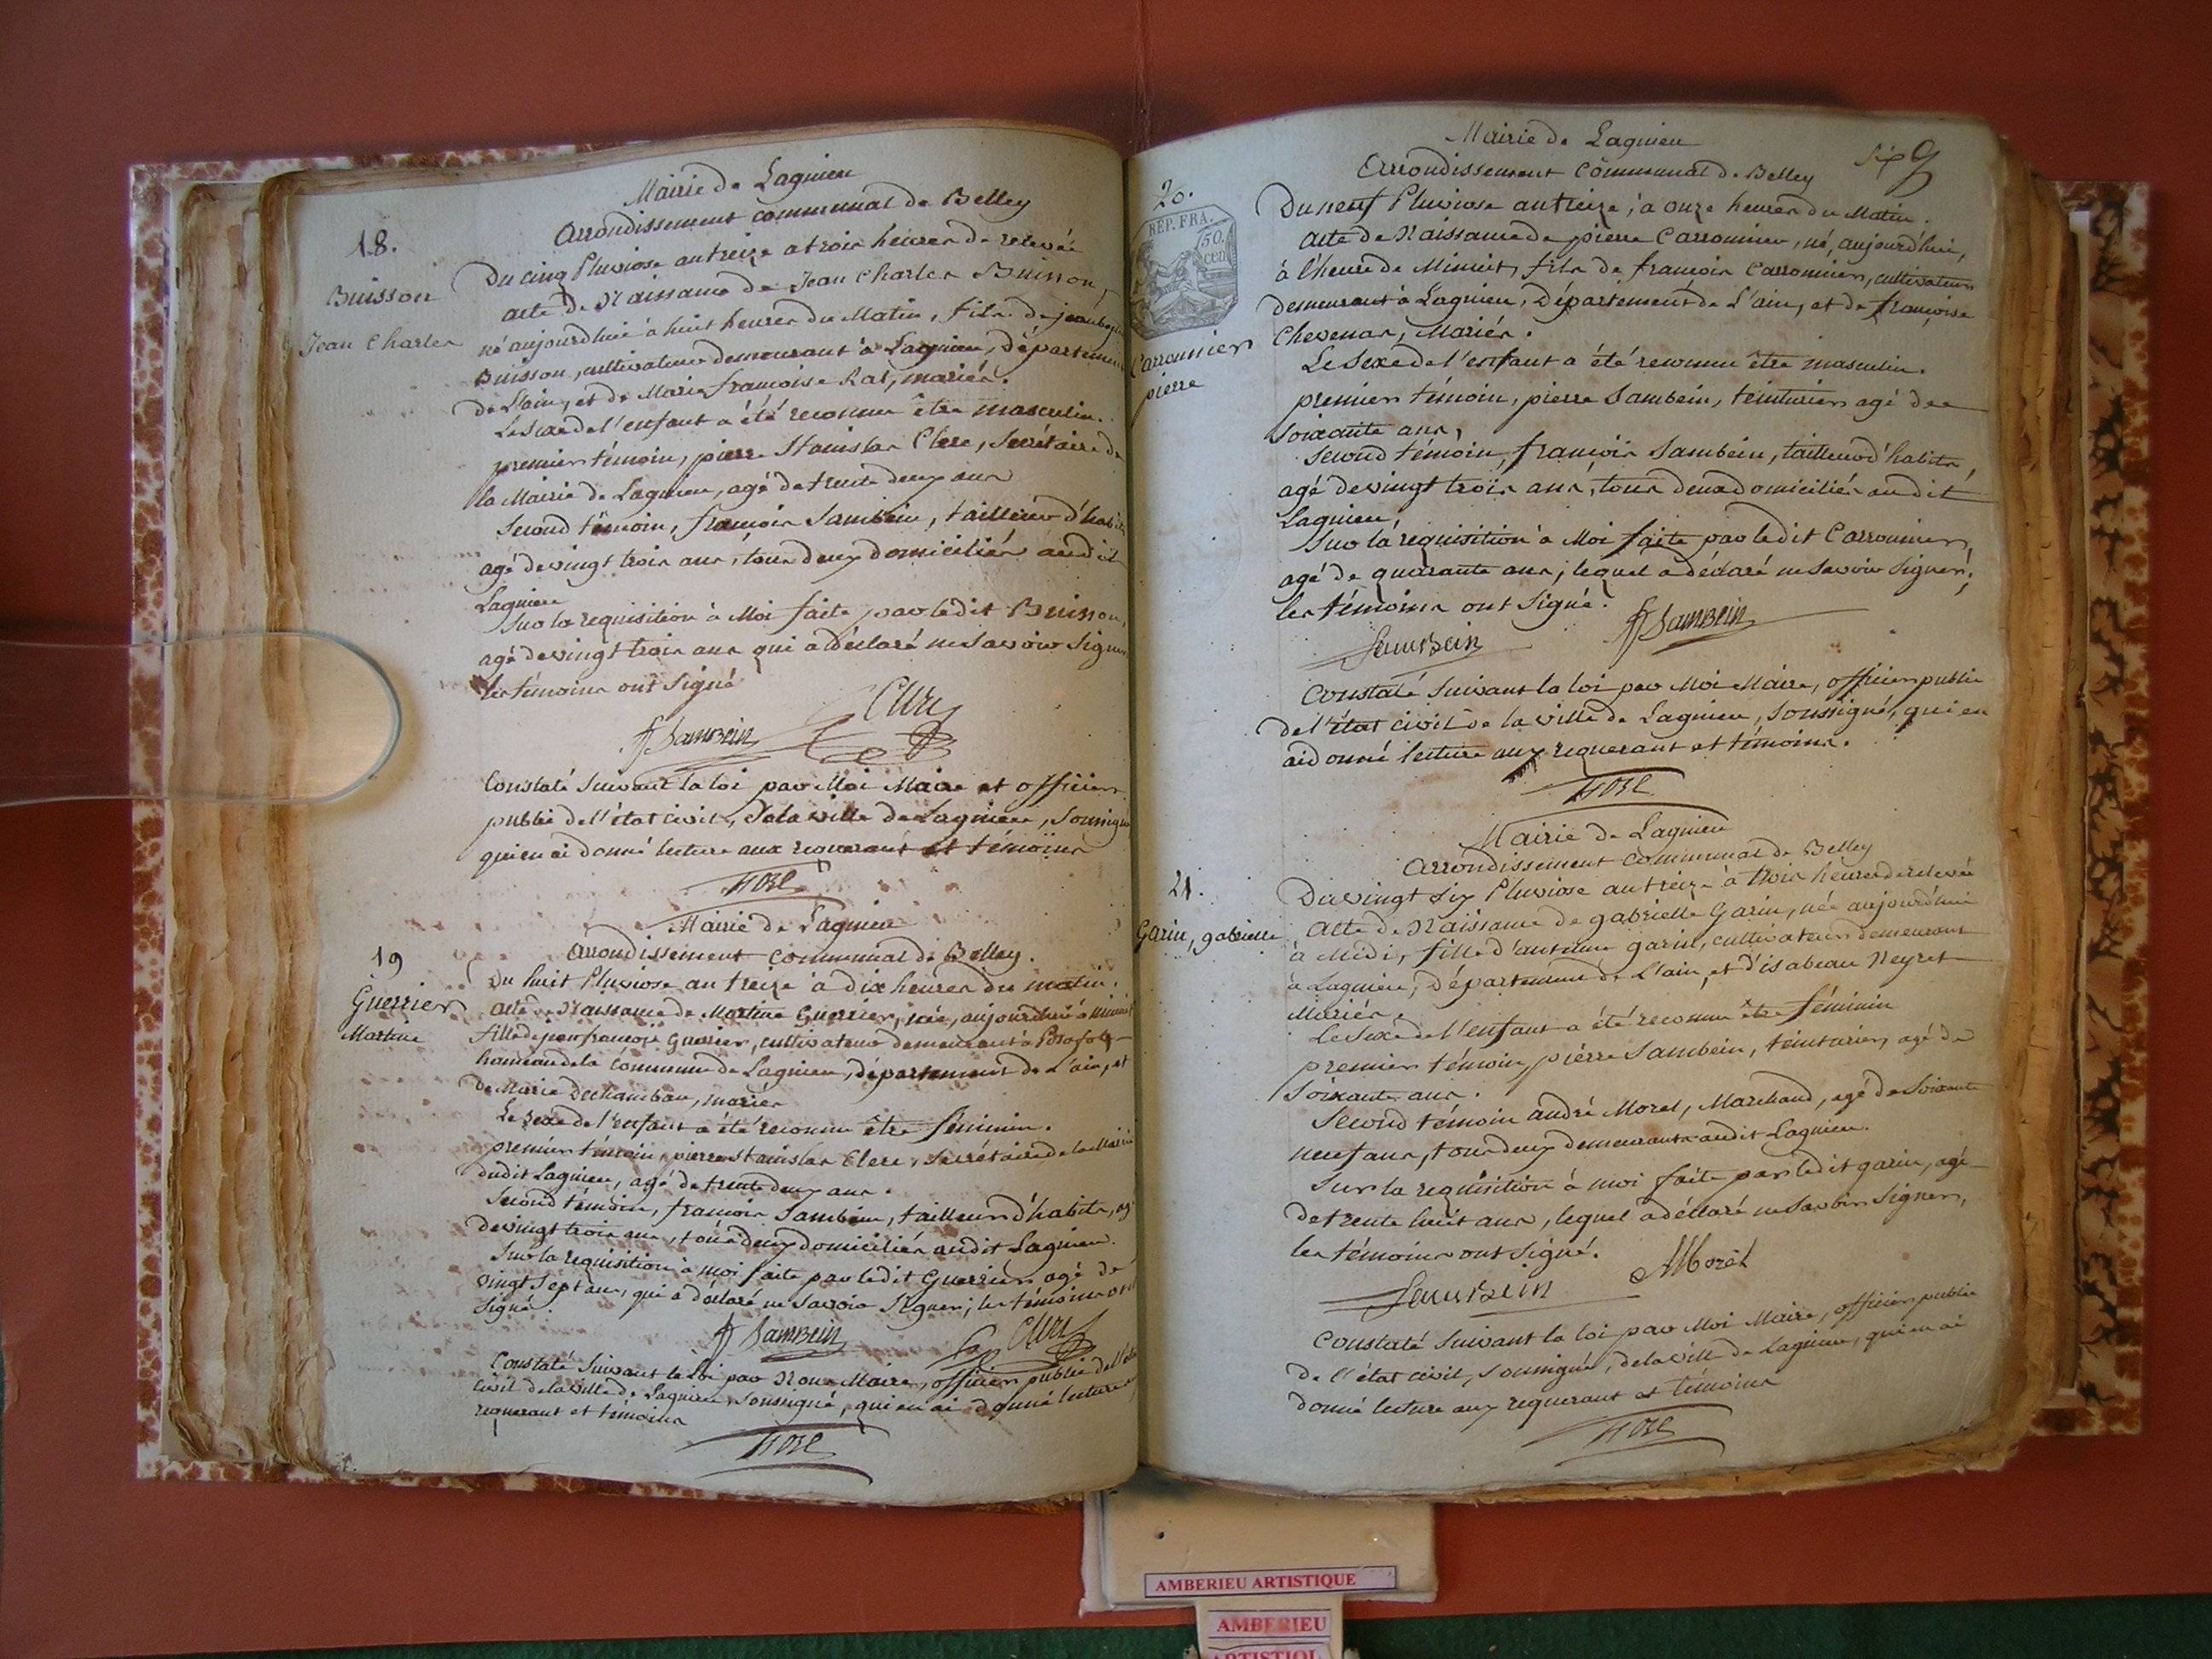 Mairie de Lagnieu
Arrondissement communal de Belley
18.
Buisson
Jean Charles
Du cinq Pluviose an treize a trois heures de relevée
acte de Naissance de Jean Charles Buisson,
né aujourdhui à huit heures du Matin, fils de jean
Buisson, cultivateur demeurant à Lagnieu, départemen
de L'ain, et de Marie françoise Rat, mariés.
Le Sexe de l'enfant a été reconnu être masculin.
premier témoin, pierre Stanislas Clerc, Secrétaire de
la Mairie de Lagnieu, agé de trente deux ans
Second témoin, françois Sambein, tailleur d'habits
agé de vingt trois ans, tous deux domiciliés audit
Lagnieu
Sur la requisition à Moi faite par ledit Buisson,
agé de vingt trois ans qui a déclaré ne Savoir Signer
les témoins ont Signé
f Sambein Clerc
Constaté Suivant la loi par Moi Maire et officier
public de l'état civil, de la ville de Lagnieu, Soussigné
qui en ai donné lecture aux requerant et témoins
Mairie de Lagnieu
Arrondissement communal de Belley.
19
Guerrier
Martine
Du huit Pluviose an treize à dix heures du matin.
acte de Naissance de Martine Guerrier, née, aujourdhui à minuit
fille de jean françois Guerrier, cultivateur demeurant à
hameau de la commune de Lagnieu, département de L'ain, et
de Marie Dechambau, mariés
Le Sexe de l'enfant a été reconnu être féminin.
premier témoin, pierre Stanislas Clerc, Secrétaire de la Mairie
dudit Lagnieu, agé de trente deux ans.
Second témoin, françois Sambein, tailleur d'habits, agé
de vingt trois ans, tous deux domiciliés audit Lagnieu.
Sur la requisition à moi faite par ledit Guerrier agé de
vingt Sept ans, qui a déclaré ne Savoir Signer; les témoins ont
Signé.
f Sambein Clerc
Constaté Suivant la loi par Nous Maire, officier public de l'état
civil de la ville de Lagnieu, Soussigné, qui en ai donné lecture
requerant et témoins
Mairie de Lagnieu
Arrondissement Communal de Belley
Six 9
20.
RÉP. FRA.
50.
cen
Carronnier
pierre
Du neuf Pluviose an treize, à onze heures du Matin.
acte de Naissance de pierre Carronnier, né, aujourd'hui,
à l'heure de Minuit, fils de françois Carronnier, cultivateur
demeurant à Lagnieu, Département de L'ain, et de françoise
Chevenas, Mariés.
Le Sexe de l'enfant a été reconnu être masculin.
premier témoin, pierre Sambein, teinturier agé de
Soixante ans,
Second témoin, françois Sambein, tailleur d'habits,
agé de vingt trois ans, tous deux domiciliés audit
Lagnieu,
Sur la requisition à Moi faite par ledit Carronnier,
agé de quarante ans, lequel a déclaré ne Savoir Signer;
les témoins ont Signé.
Sambein f Sambein
Constaté Suivant la loi par Moi Maire, officier public
de l'état civil de la ville de Lagnieu, Soussigné, qui en
ai donné lecture aux requerant et témoins.
Mairie de Lagnieu
Arrondissement Communal de Belley
21.
Garin, gabrielle
Du vingt Six Pluviose an treize à trois heures de relevée
Acte de Naissance de gabrielle Garin, née aujourd'hui
à Midi, fille d'antoine garin, cultivateur demeurant
à Lagnieu, Département de L'ain, et d'isabeau Neyret
Mariés.
Le Sexe de l'enfant a été reconnu être féminin
premier témoin pierre Sambein, teinturier, agé de
Soixante ans.
Second témoin andré Morel, Marchand, agé de Soixante
neuf ans, tous deux demeurants audit Lagnieu.
Sur la requisition à moi faite par ledit garin, agé
de trente huit ans, lequel a déclaré ne Savoir Signer,
les témoins ont Signé.
Sambein AMorel
Constaté Suivant la loi par Moi Maire, officier public
de l'état civil, soussigné, de la ville de Lagnieu, qui en ai
donné lecture aux requerant et témoins
AMBERIEU ARTISTIQUE
AMBERIEU